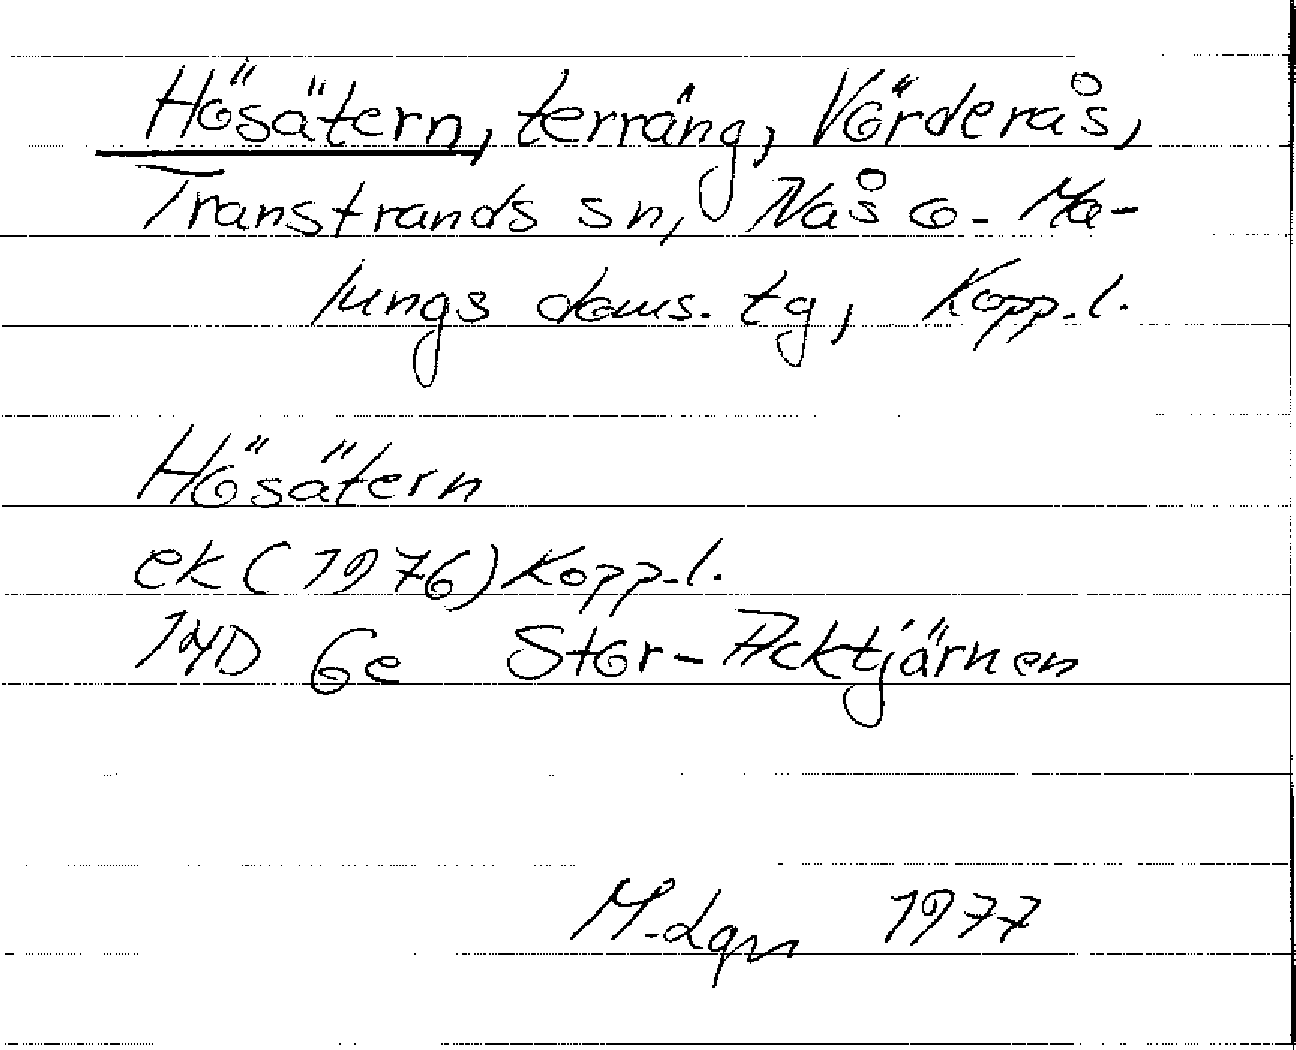 Hösätern, terräng, Vörderås,
Transtrands sn, Nås o. Ma-
lungs doms. tg, Kopp. l.
Hösätern
ek (1976) Kopp. l.
14D 6e Stor-Acktjärnen
1977